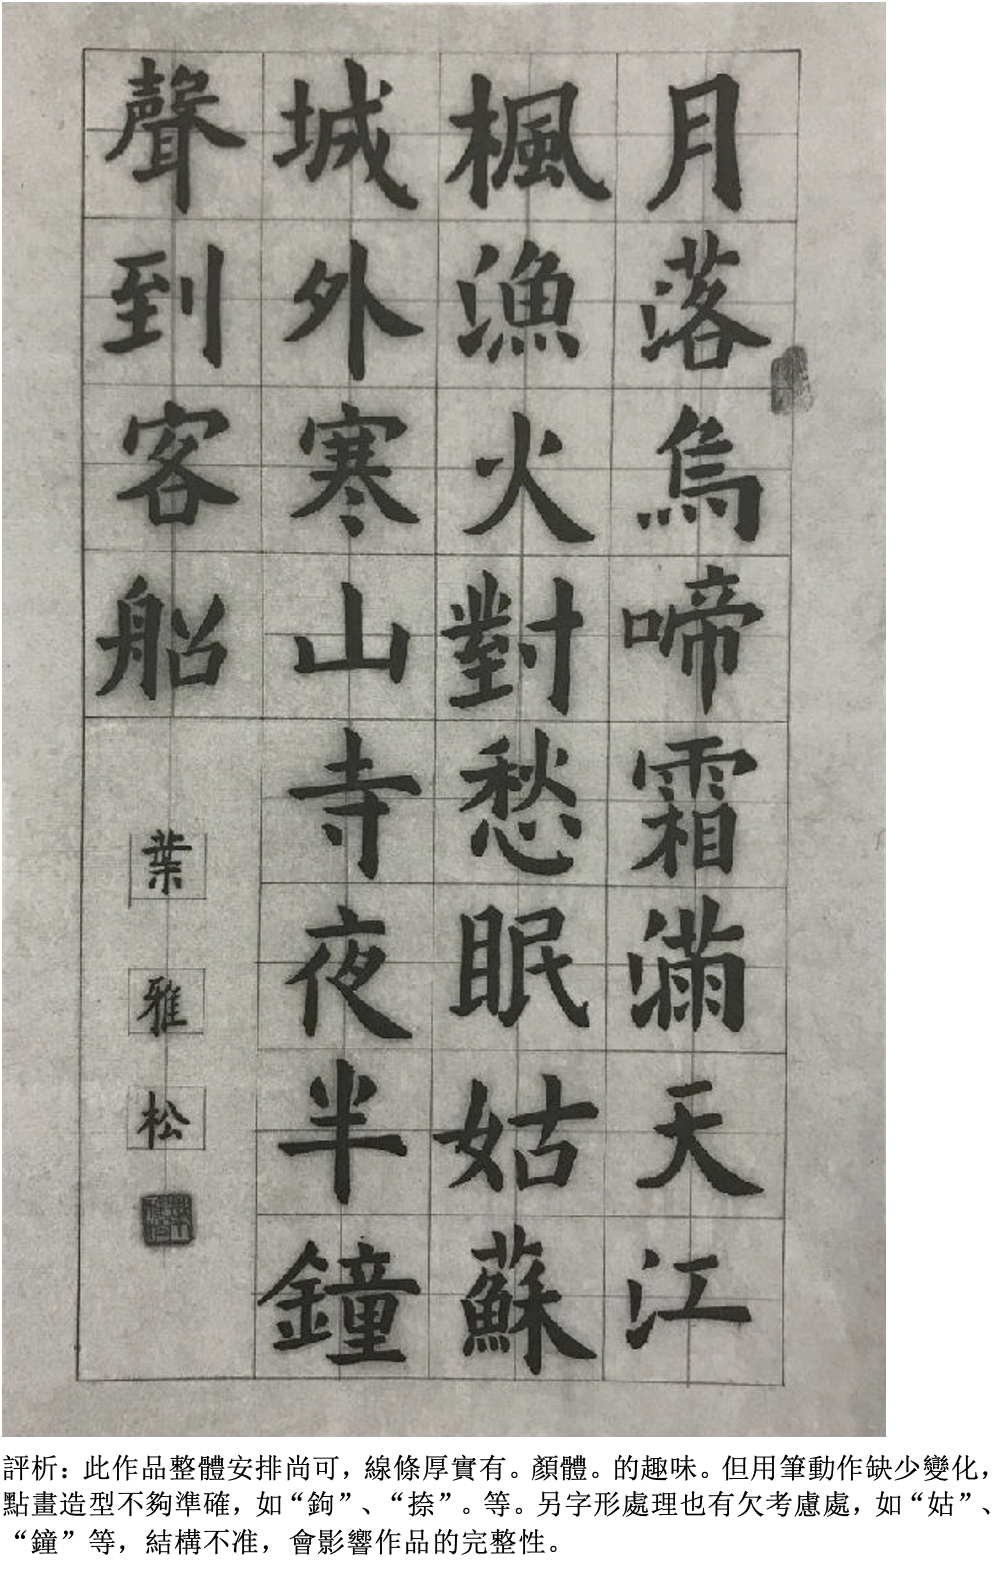 月落烏啼霜滿天江
楓漁火對愁眠姑蘇
城外寒山寺夜半鐘
聲到客船
葉雅松
評析：此作品整體安排尚可，線條厚實有。顏體。的趣味。但用筆動作缺少變化，
點畫造型不夠準確，如“鉤”、“捺”。等。另字形處理也有欠考慮處，如“姑”、
“鐘”等，結構不准，會影響作品的完整性。